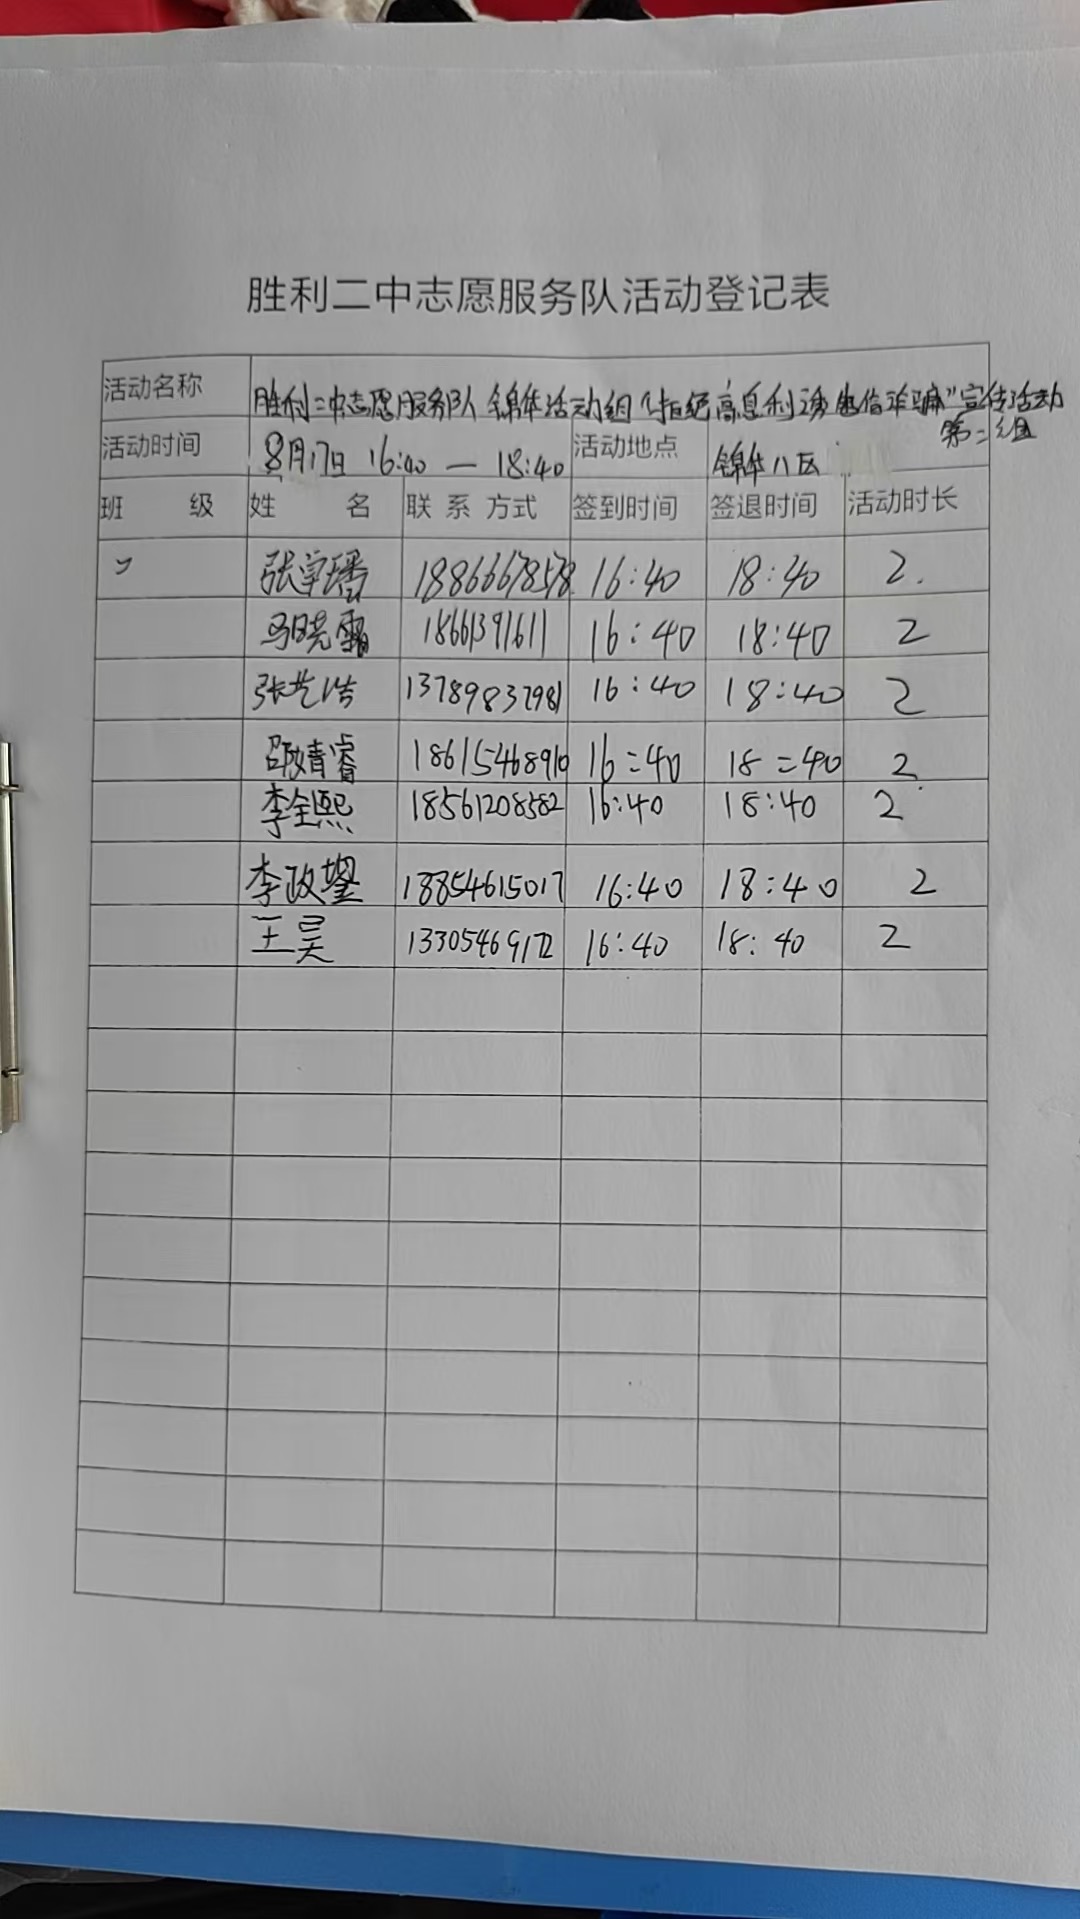 胜利二中志愿服务队活动登记表
活动名称 胜利二中志愿服务队锦华活动组“拒绝高息利诱电信诈骗”宣传活动
第二组
活动时间 8月17日 16:40 — 18:40 活动地点 锦华八区
班 级 姓 名 联系方式 签到时间 签退时间 活动时长
张学璠 18866678578 16:40 18:40 2.
马晓霜 18661391611 16:40 18:40 2
张艺浩 13789837981 16:40 18:40 2
邵婧睿 18615468910 16:40 18:40 2
李全熙 18561208582 16:40 18:40 2
李政 18854615017 16:40 18:40 2
王昊 13305469172 16:40 18:40 2